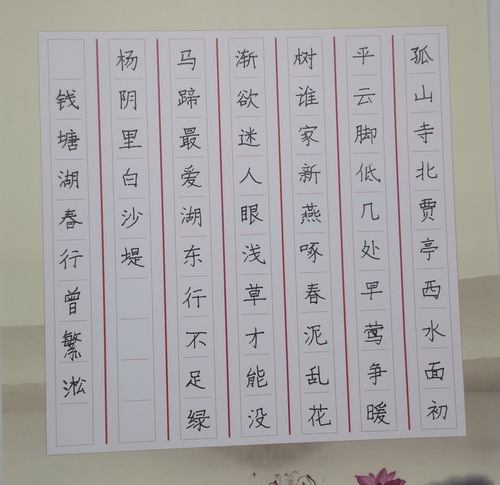 孤山寺北贾亭西水面初
平云脚低几处早莺争暖
树谁家新燕啄春泥乱花
渐欲迷人眼浅草才能没
马蹄最爱湖东行不足绿
杨阴里白沙堤
钱塘湖春行曾繁淞